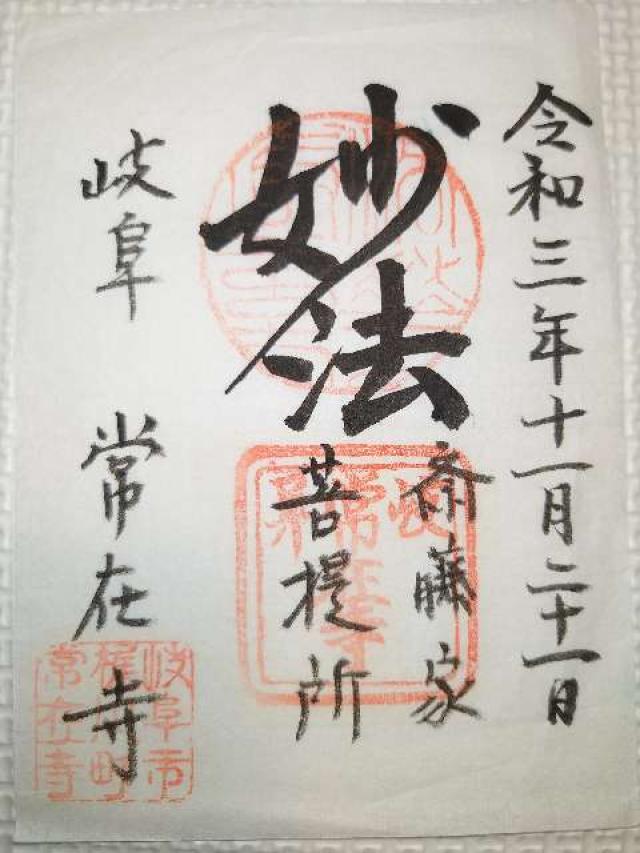 令和三年十一月二十一日
妙法
斎藤家
菩提所
岐阜 常在寺
岐阜市
梶川町
常在寺